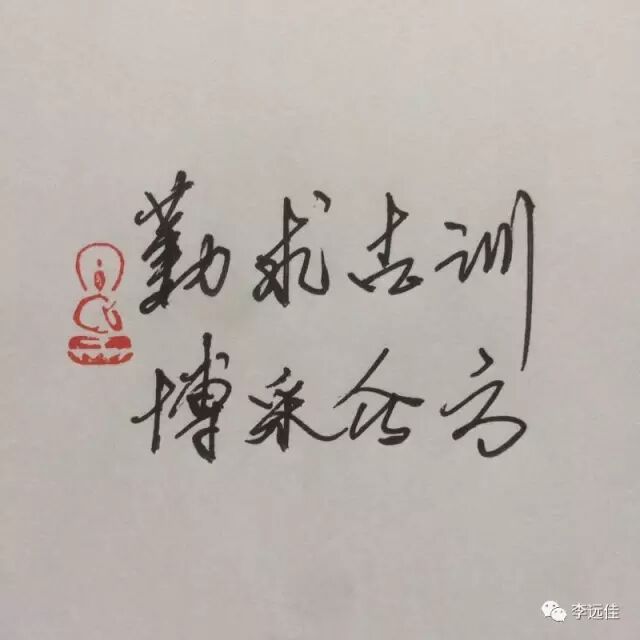 勤求古训
博采众方
李远佳